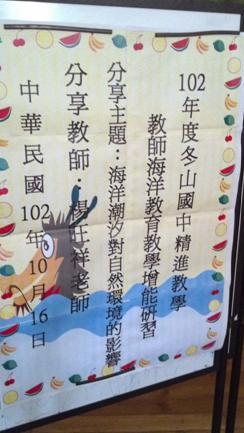 102年度冬山國中精進教學
教師海洋教育教學增能研習
分享主題：海洋潮汐對自然環境的影響
分享教師：楊旺祥老師
中華民國102年10月16日